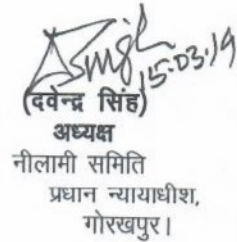 Singh
15.03.19
(दवेन्द्र सिंह)
अध्यक्ष
नीलामी समिति
प्रधान न्यायाधीश,
गोरखपुर।